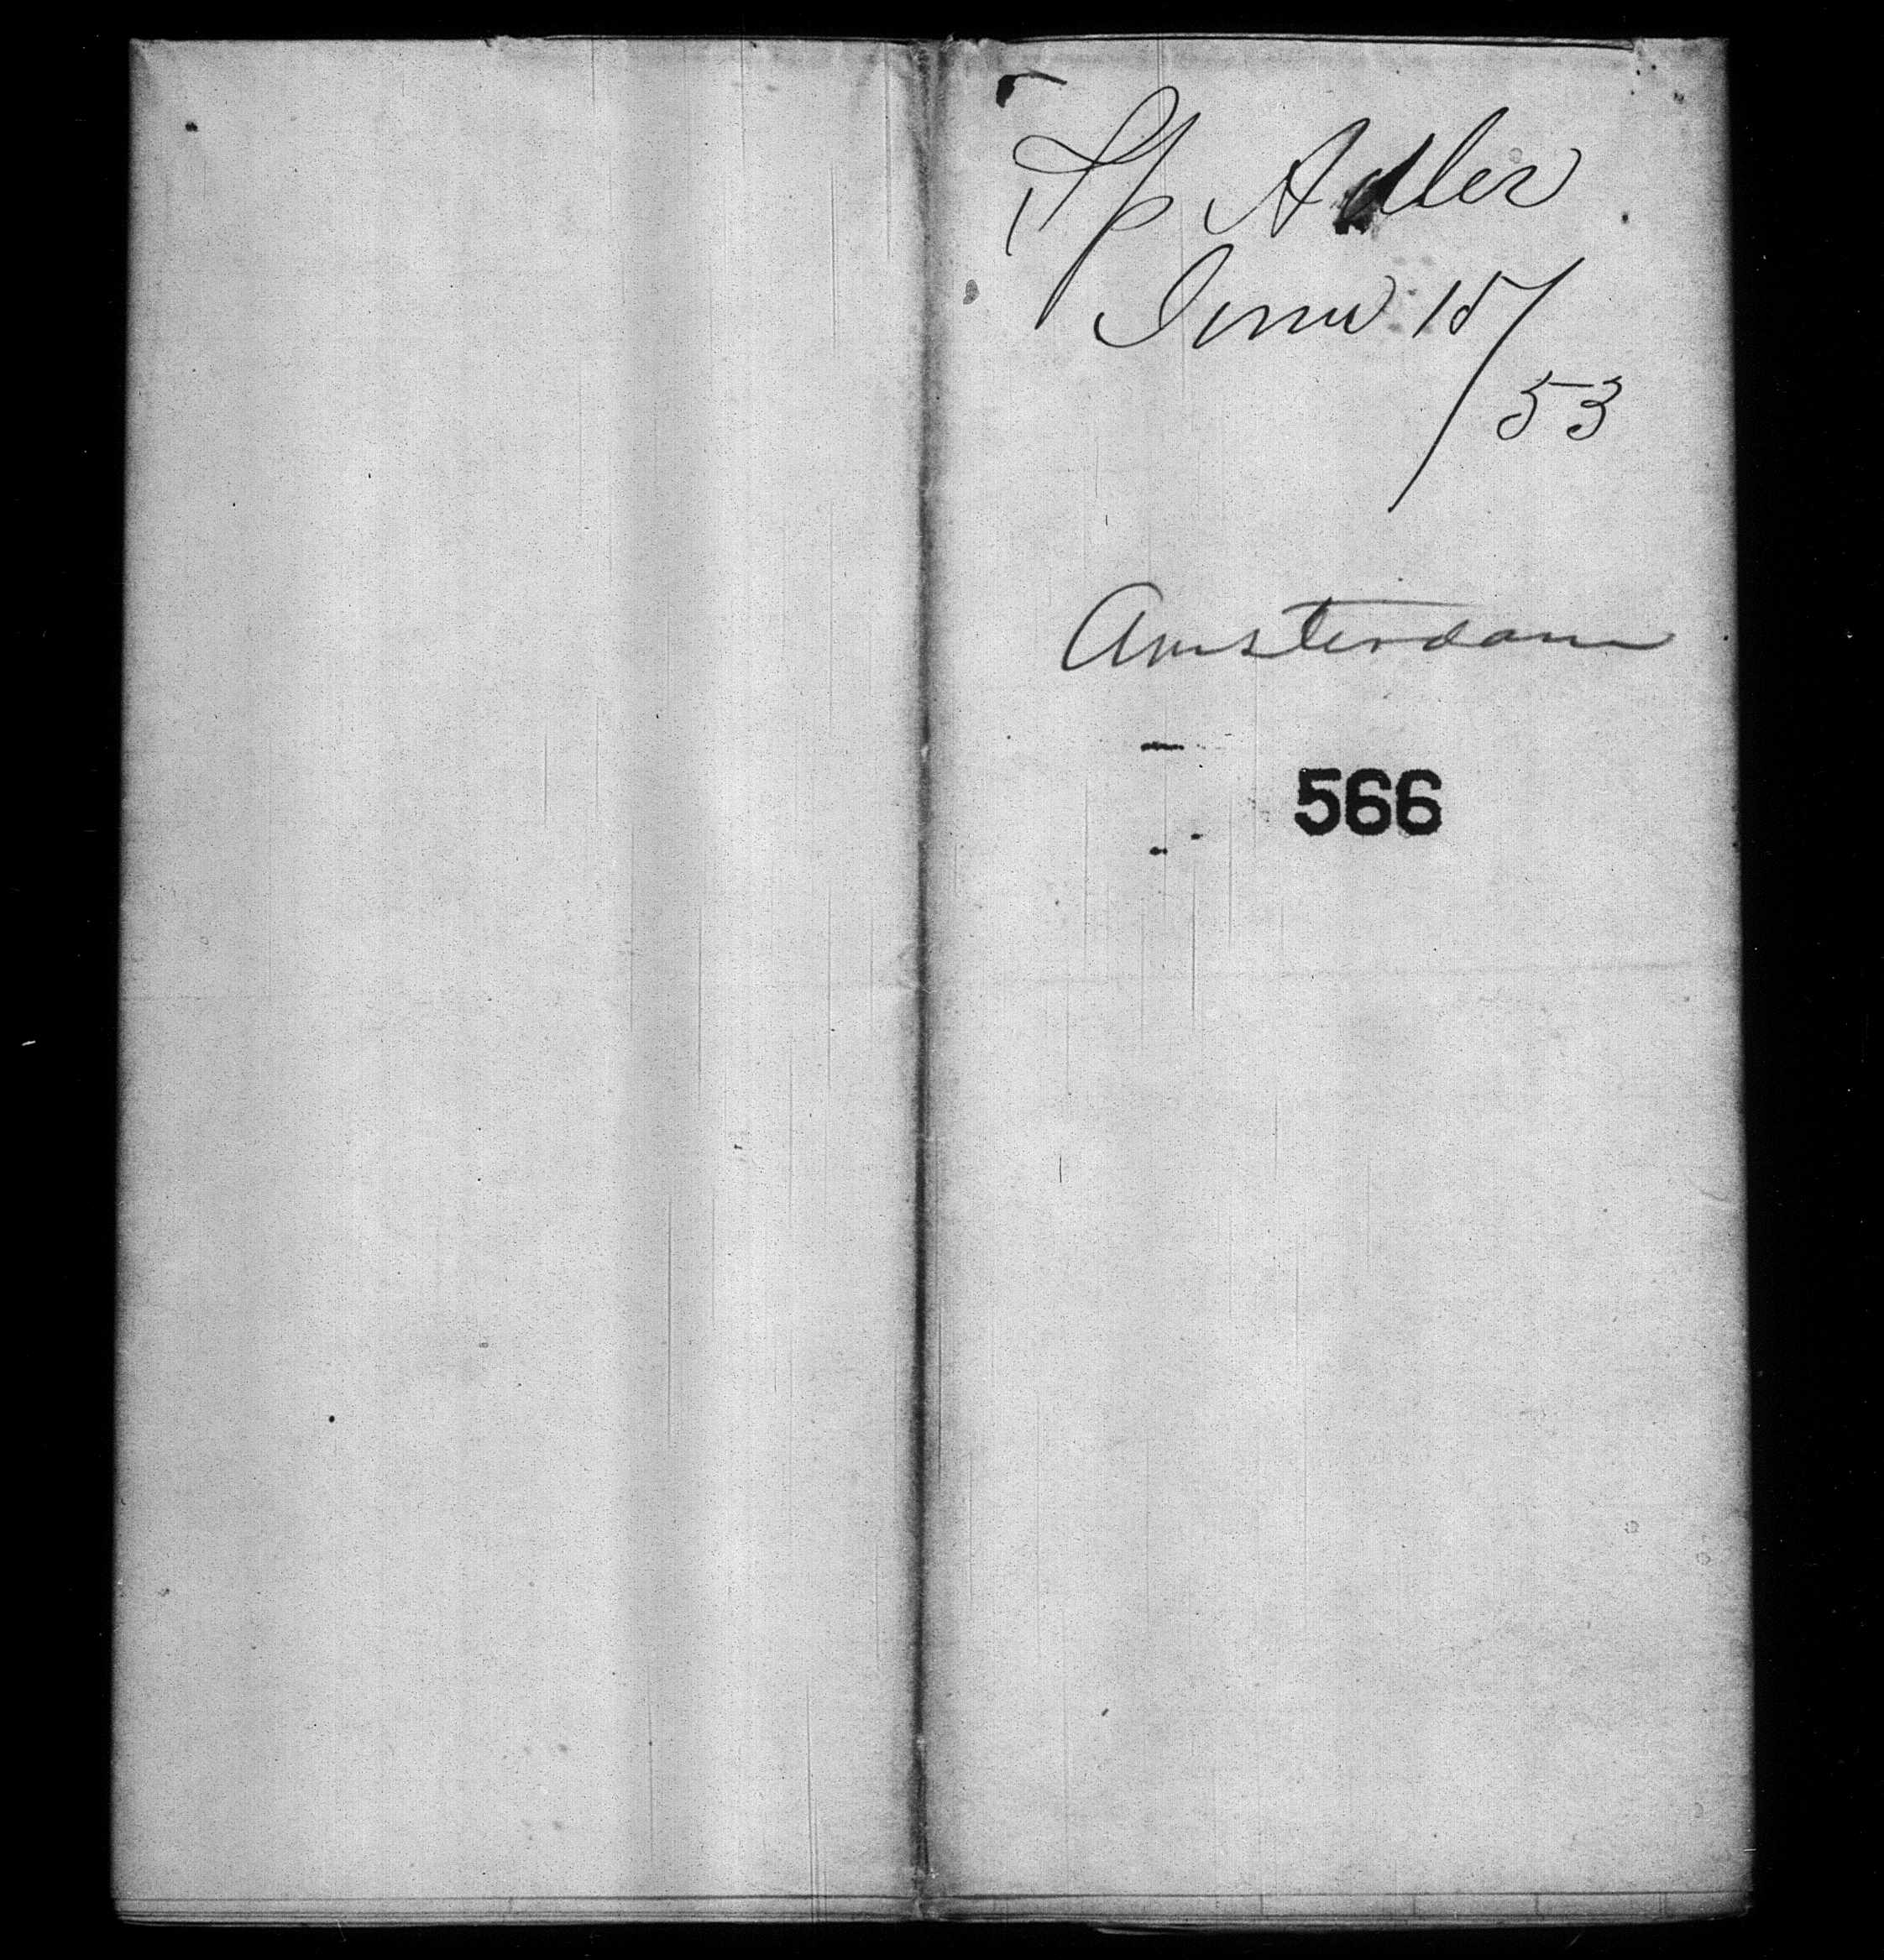 Sp Adler
June 15/
53
Amsterdam
566